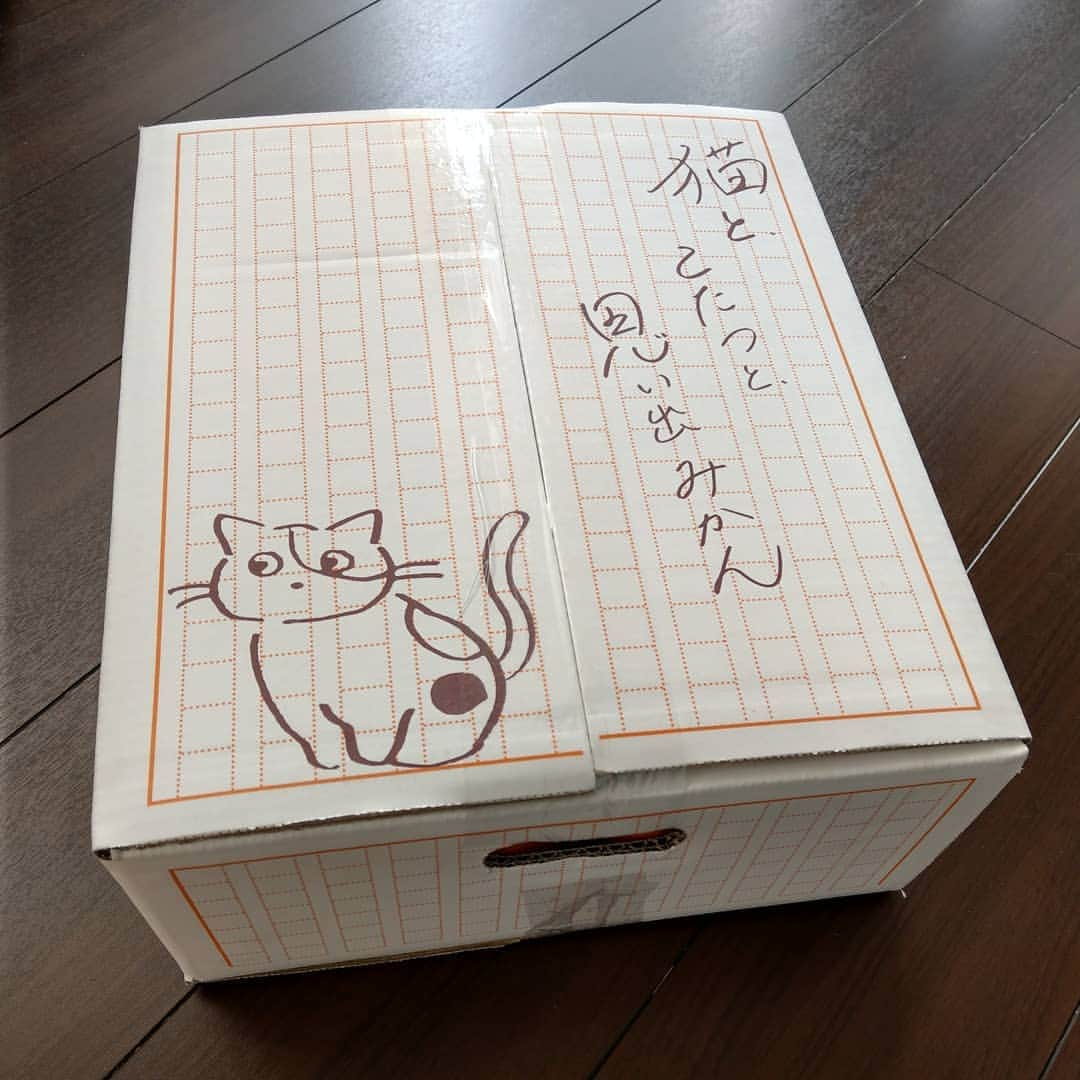 猫と、
こたつと、
思い出みかん